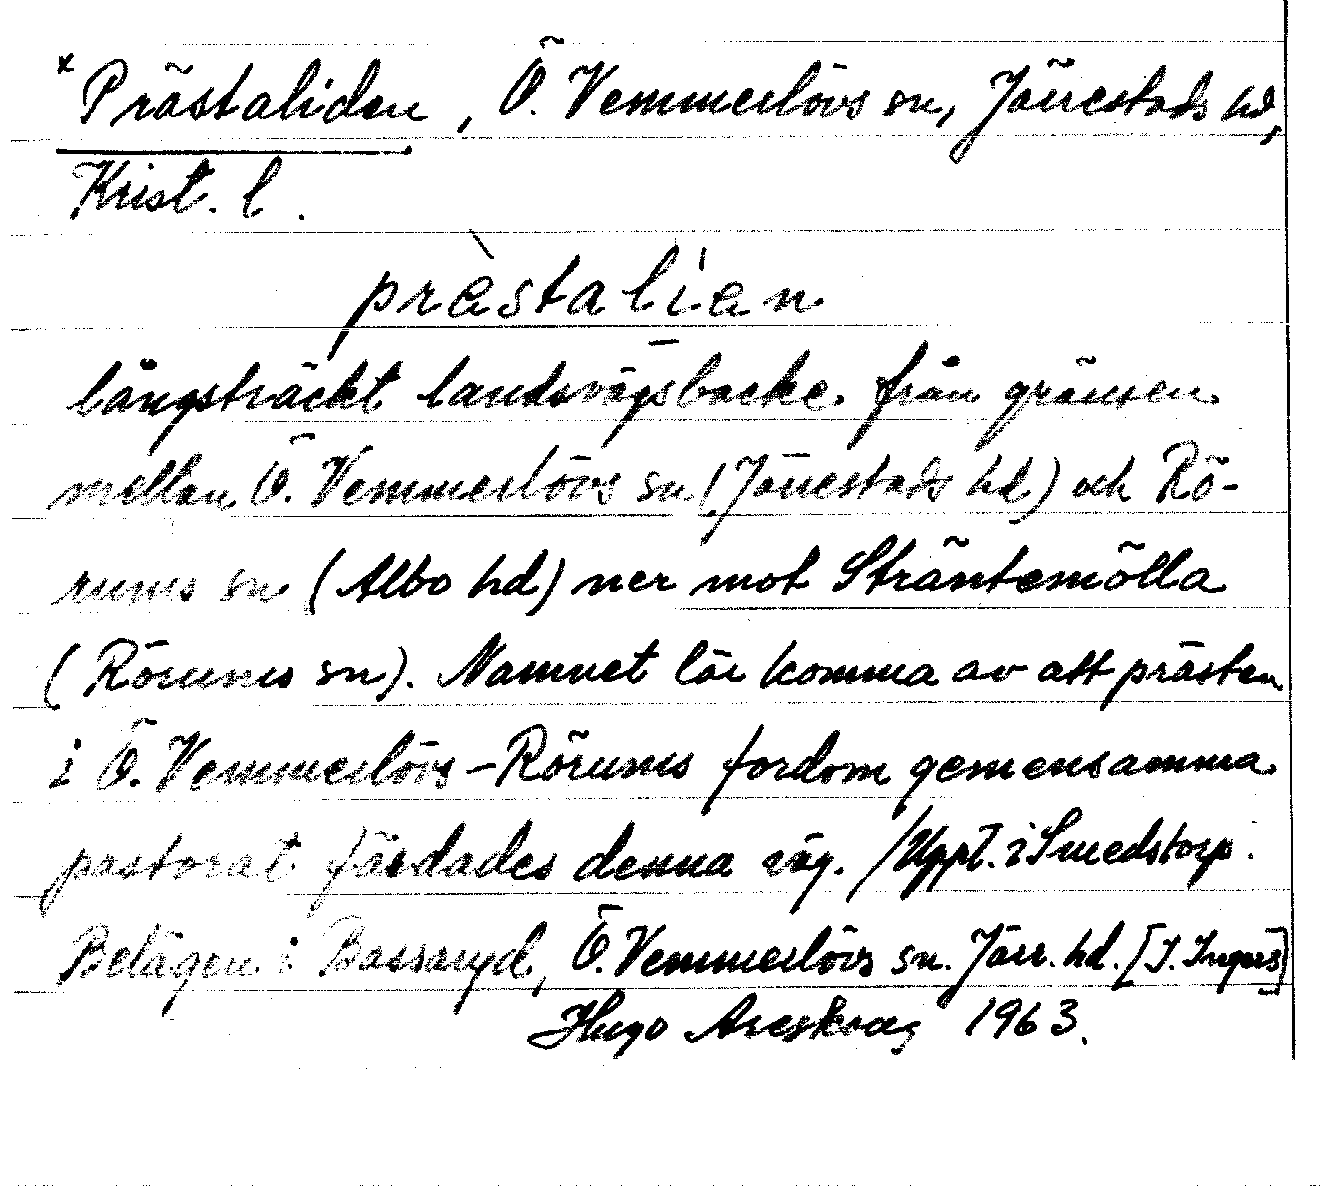 *Prästaliden, Ö. Vemmerlövs sn, Järrestads hd,
Krist. l.
prèstalíen
långsträckt landsvägsbacke från gränsen
mellan Ö. Vemmerlövs sn (Järrestads hd) och Rö-
rums sn (Albo hd) ner mot Sträntemölla
(Rörums sn). Namnet lär komma av att prästen
i Ö. Vemmerlövs-Rörums fordom gemensamma
pastorat färdades denna väg. /Uppt. i Smedstorp.
Belägen i Bassaryd, Ö. Vemmerlövs sn. Järr. hd. [I. Ingers]
Hugo Areskoug 1963.